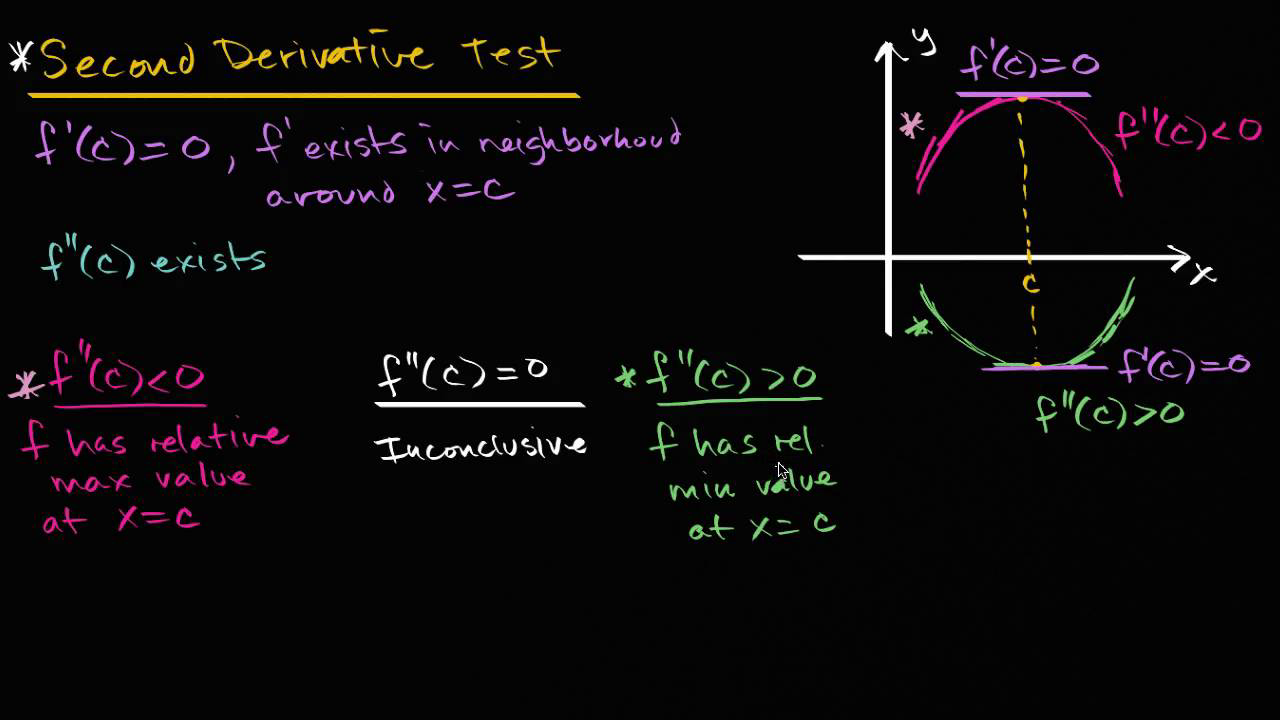 *Second Derivative Test
f'(c)=0, f' exists in neighborhood
around x=c
f''(c) exists
*f''(c)<0
f has relative
max value
at x=c
f''(c)=0
Inconclusive
*f''(c)>0
f has rel.
min value
at x=c
y
f'(c)=0
*
f''(c)<0
x
c
*
f'(c)=0
f''(c)>0